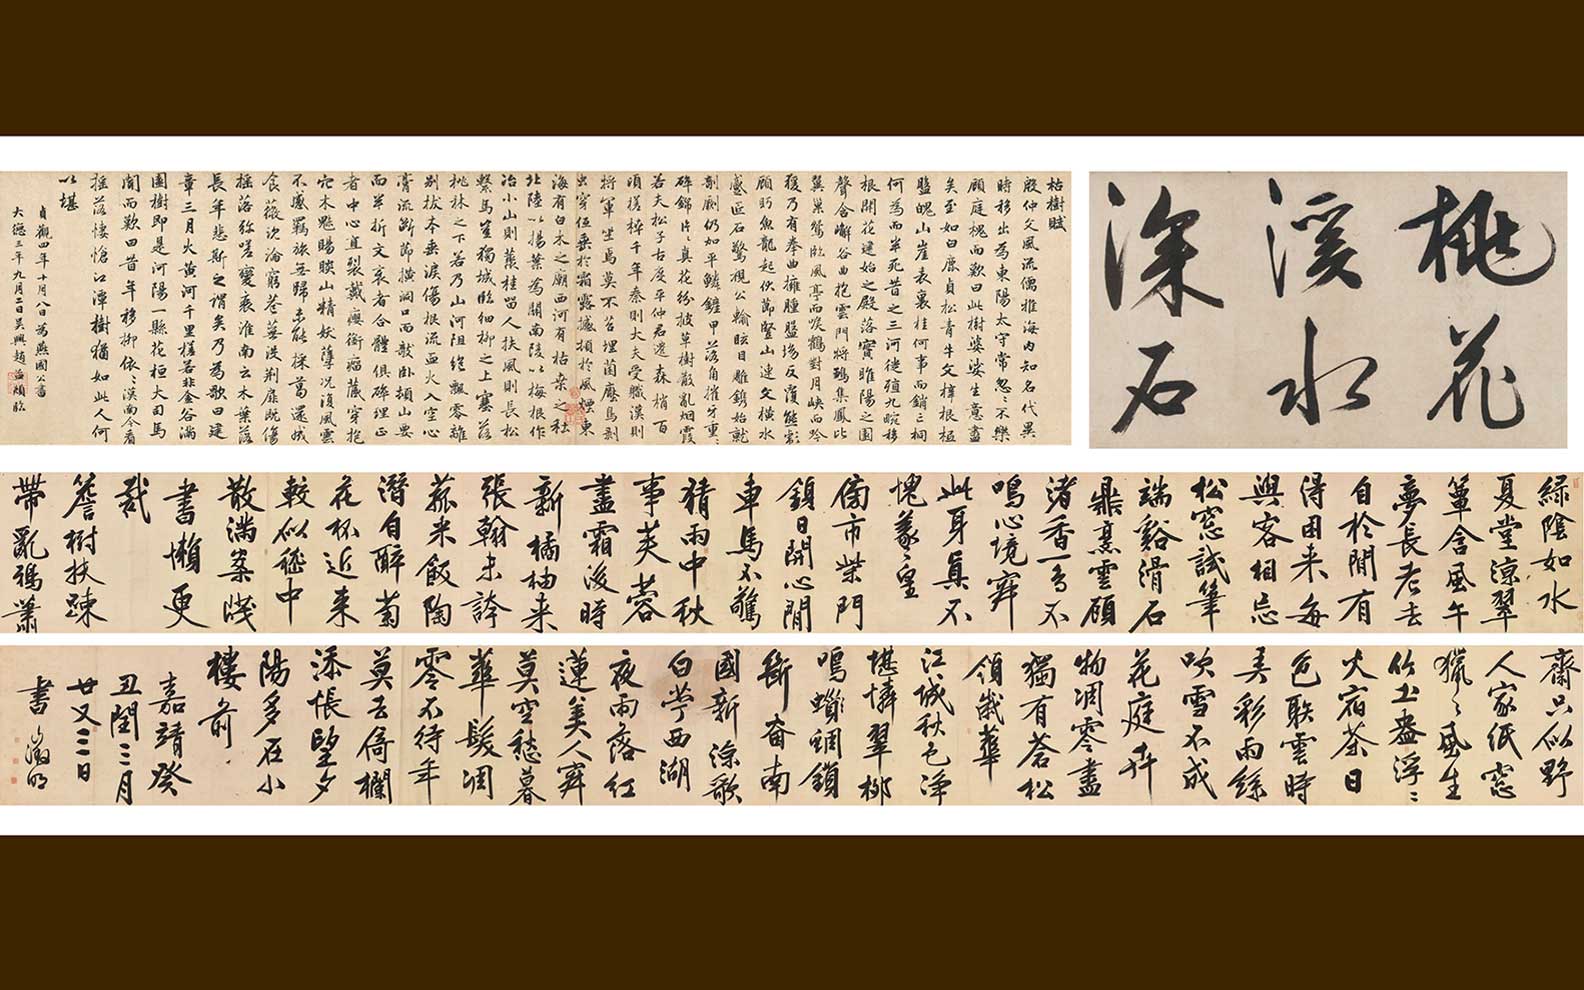 枯樹賦
殷仲文風流儒雅海内知名代異
時移出為東陽太守常忽〻不樂
顧庭槐而歎曰此樹婆娑生意盡
矣至如白鹿貞松青牛文梓根柢
盤魄山崖表裏桂何事而銷亡桐
何為而半死昔之三河徙殖九畹移
根開花建始之殿落實睢陽之園
聲含嶰谷曲抱雲門將鶵集鳳比
翼巢鴛臨風亭而唳鶴對月峽而吟
猨乃有拳曲擁腫盤坳反覆熊彪
顧盼魚龍起伏節豎山連文横水
蹙匠石驚視公輸眩目雕鐫始就
剞劂仍加平鱗鏟甲落角摧牙重〻
碎錦片〻真花紛披草樹散亂烟霞
若夫松子古度平仲君遷森梢百
頃槎枿千年秦則大夫受職漢則
將軍坐焉莫不苔埋菌壓鳥剥
虫穿低垂於霜露撼頓於風煙東
海有白木之廟西河有枯桑之社
北陸以揚葉為關南陵以梅根作
冶小山則叢桂留人扶風則長松
繫馬豈獨城臨細柳之上塞落
桃林之下若乃山河阻絶飄零離
别拔本垂淚傷根流血火入空心
膏流斷節横洞口而敧卧頓山要
而半折文衺者合體俱碎理正
者中心直裂戴癭銜瘤藏穿抱
穴木魅睗睒山精妖孽況復風雲
不感羈旅無歸未能採葛還成
食薇沉淪窮巷蕪没荆扉既傷
摇落弥嗟變衰淮南云木葉落
長年悲斯之謂矣乃為歌曰建
章三月火黄河千里槎若非金谷滿
園樹即是河陽一縣花桓大司馬
聞而歎曰昔年移柳依〻漢南今看
摇落悽愴江潭樹猶如此人何
以堪
貞觀四年十月八日為燕國公書
大德三年九月二日吴興趙孟頫臨
桃花
溪水
深石
緑陰如水
夏堂涼翠
簟含風午
夢長老去
自於閒有
得困来每
與客相忘
松窓試筆
端谿滑石
鼎烹雲顧
渚香一鳥不
鳴心境寂
此身真不
愧羲皇
傭市柴門
鎖日閒心閒
車馬不驚
猜雨中秋
事芙蓉
盡霜後時
新橘柚来
張翰未誇
菰米飯陶
潛自醉菊
花杯近来
較似嵇中
散滿案牋
書懶更
裁
簷樹扶踈
帶亂鴉蕭
齋只似野
人家紙窓
獵〻風生
竹土盎浮〻
火宿茶日
色聅雲時
弄彩雨絲
吹雪不成
花庭卉
物凋零盡
獨有蒼松
領歲華
江城秋色淨
堪憐翠柳
鳴蜩鎖
斷畨南
國新涼歌
白苧西湖
夜雨落紅
蓮美人寂
莫空愁暮
華髮凋
零不待年
莫去倚欄
添悵望夕
陽多在小
樓前
嘉靖癸
丑閏三月
廿又三日
書 徵明